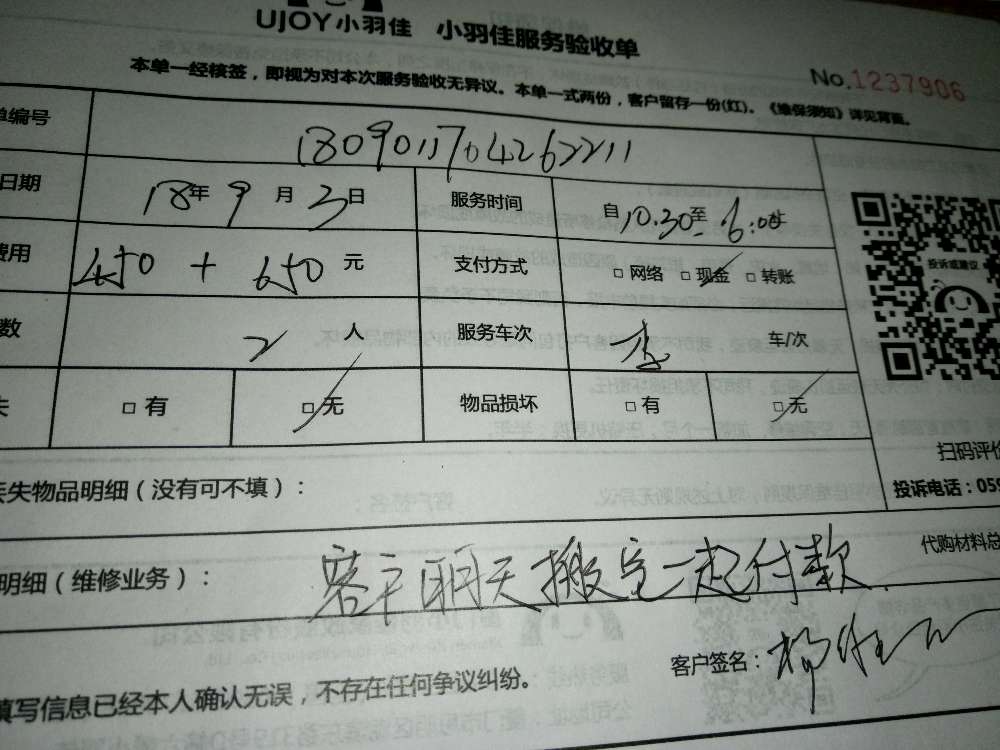 UJOY小羽佳 小羽佳服务验收单
No.1237906
本单一经核签，即视为对本次服务验收无异议。本单一式两份，客户留存一份(红)。《维保须知》详见背面。
单编号 1809011704262211
日期 18年9月3日 服务时间 自10.30至6:00
费用 450+650元 支付方式 □网络 □现金 □转账
数 2人 服务车次 车/次
失 □有 □无 物品损坏 □有 □无
投诉或建议
扫码评价
丢失物品明细（没有可不填）：
投诉电话：059
代购材料总
明细（维修业务）： 客户明天搬完一起付款.
填写信息已经本人确认无误，不存在任何争议纠纷。
客户签名：